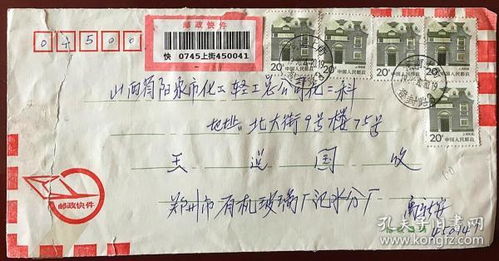 邮政快件
快 0745上街450041
04500
20分 中国人民邮政
20分 中国人民邮政
20分 中国人民邮政
20分 中国人民邮政
20分 中国人民邮政
山西省阳泉市化工轻工总公司化二科
地址：北大街9号楼75号
王选国 收
邮政快件
郑州市有机玻璃厂汜水分厂
孔夫子旧书网
www.kongfz.com